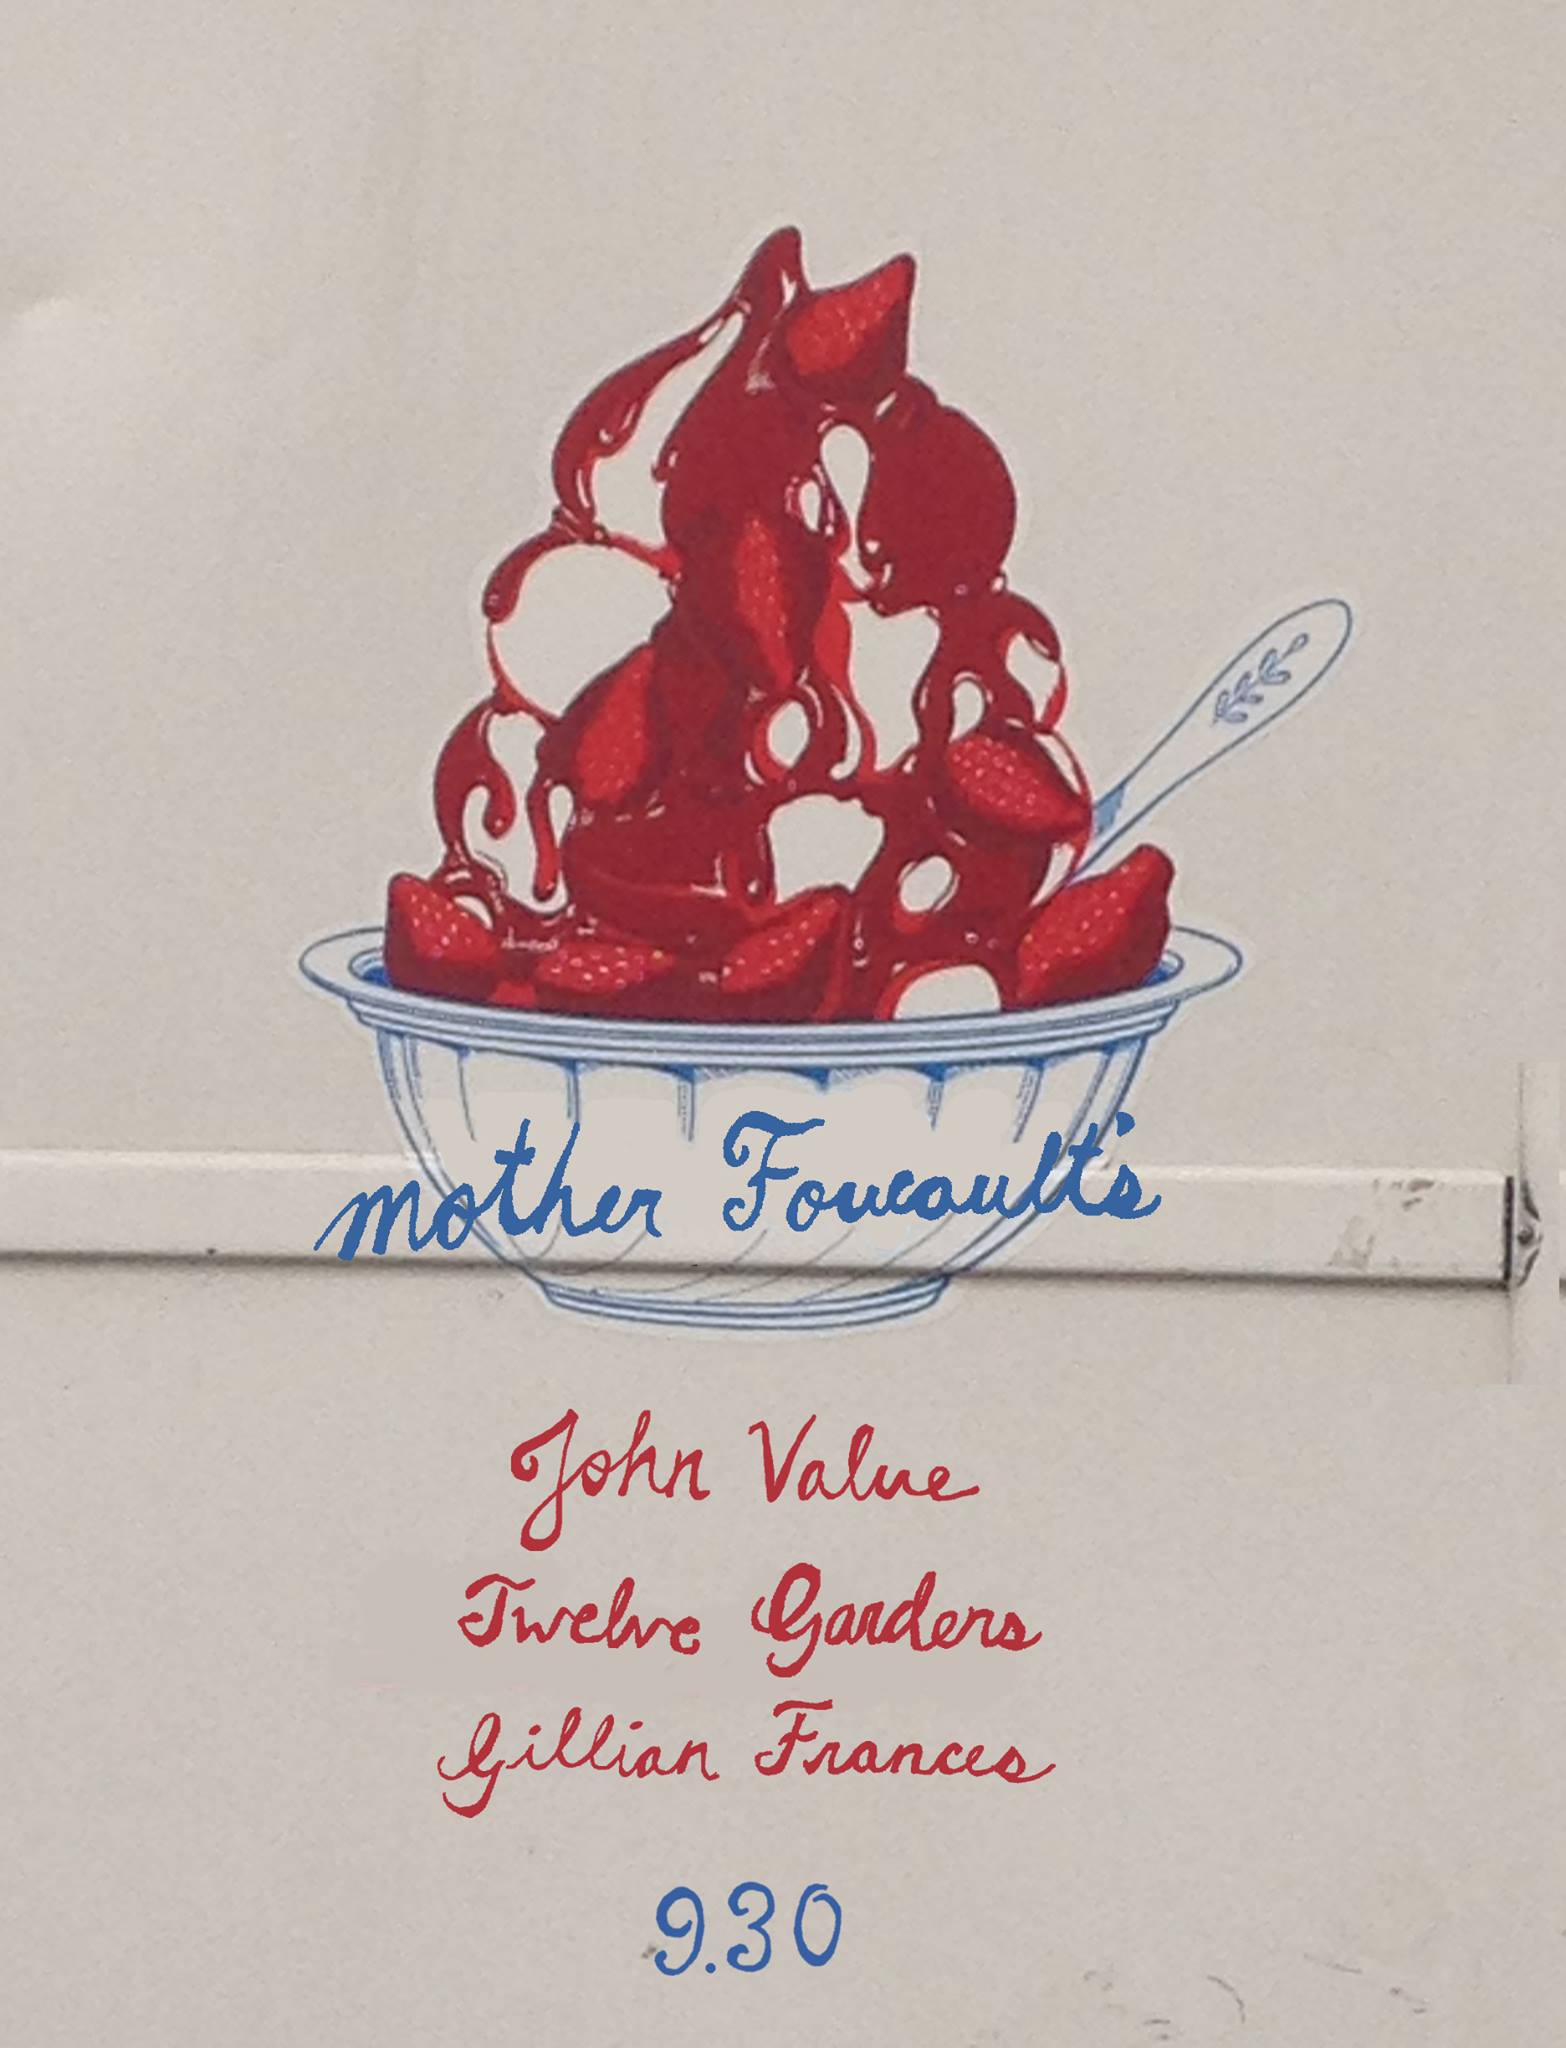 mother Foucault's
John Value
Twelve Gardens
Gillian Frances
9.30